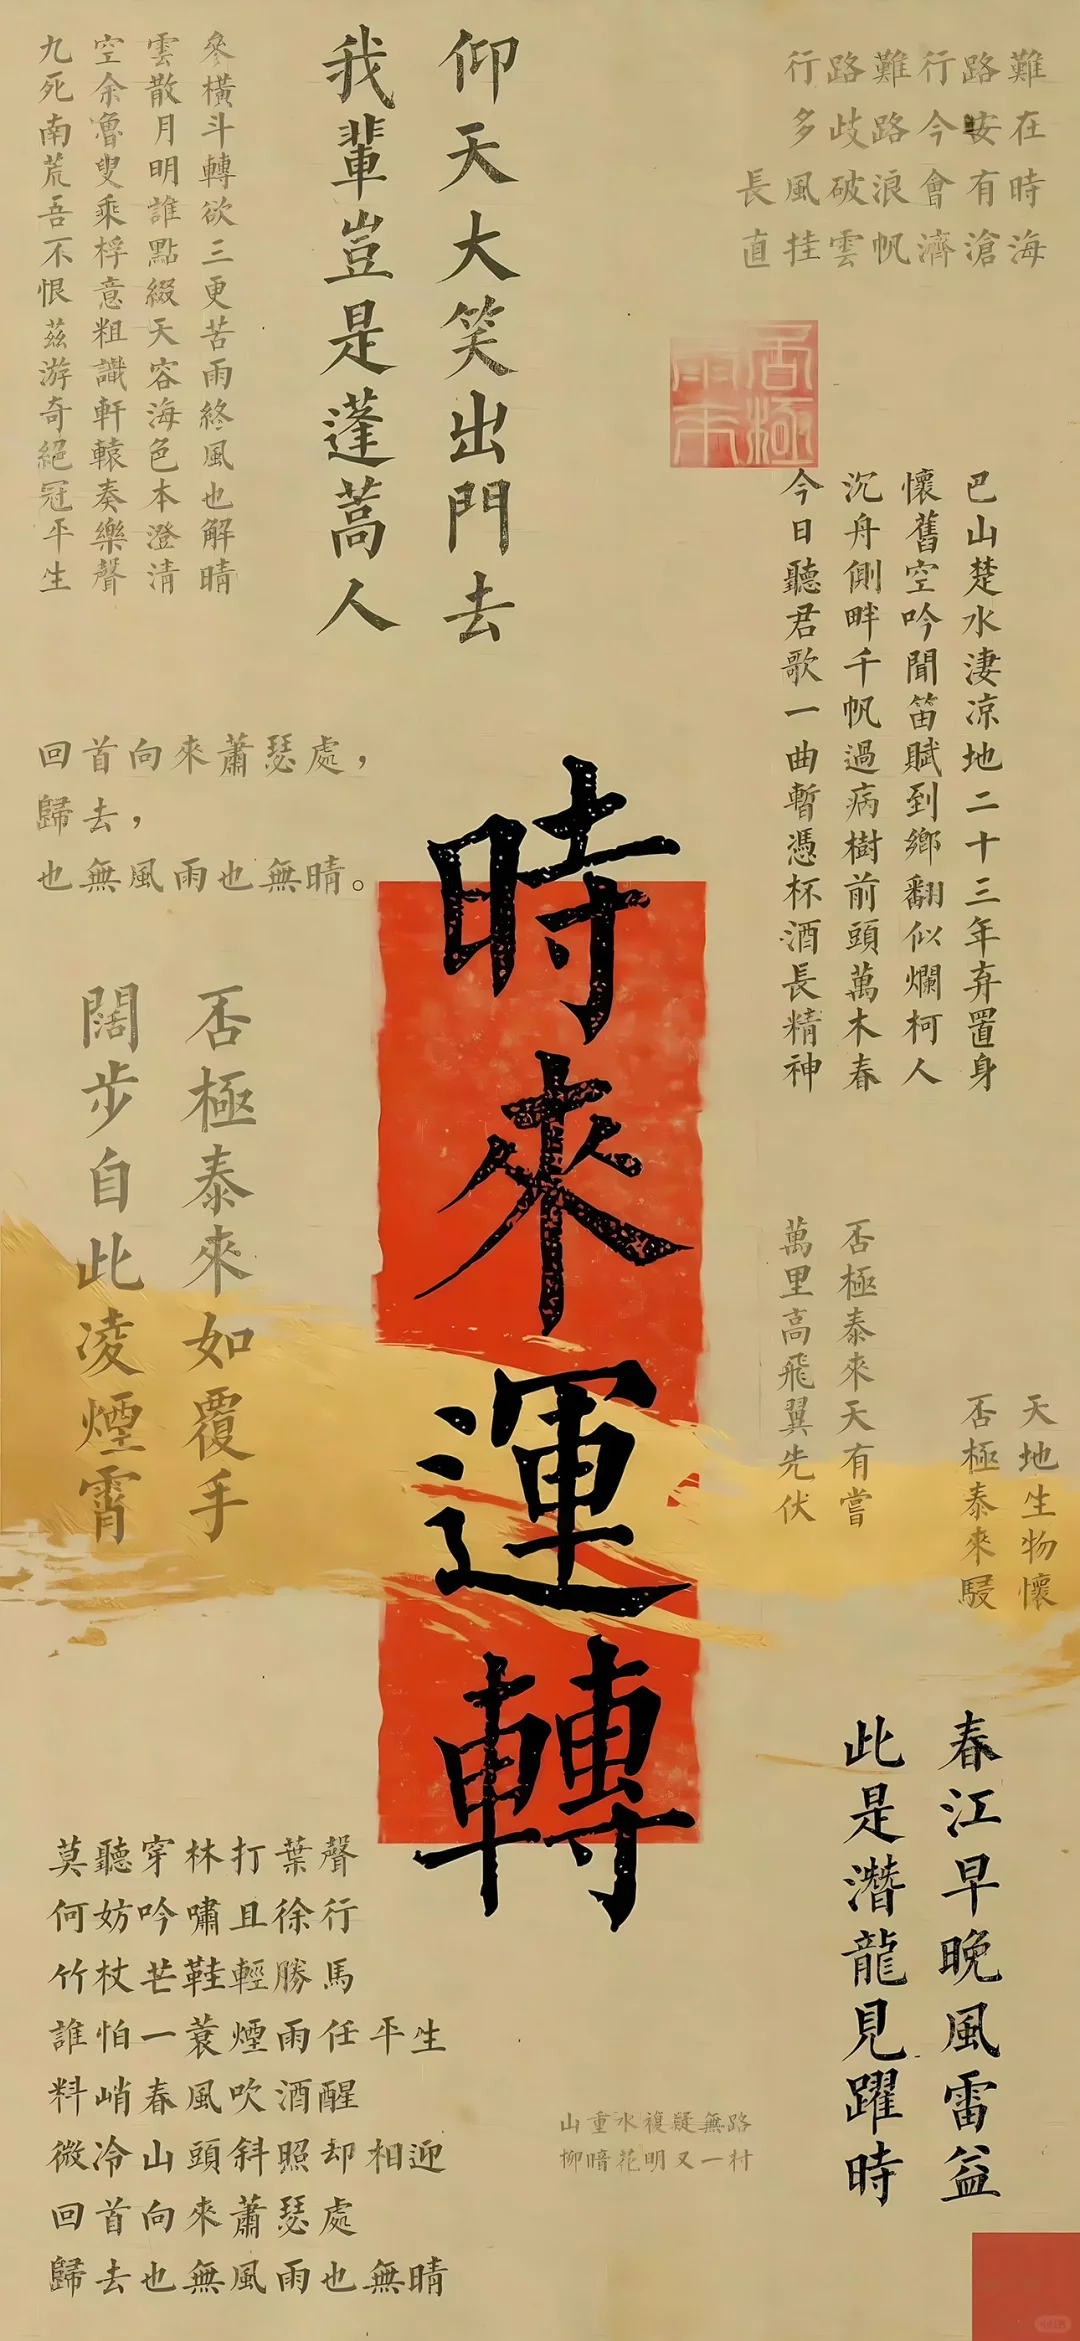 難路行難路行
在安今路歧多
時有會浪破風長
海滄濟帆雲挂直
仰天大笑出門去
我輩豈是蓬蒿人
參橫斗轉欲三更苦雨終風也解晴
雲散月明誰點綴天容海色本澄清
空余魯叟乘桴意粗識軒轅奏樂聲
九死南荒吾不恨茲游奇絕冠平生
否極
巴山楚水淒凉地二十三年弃置身
懷舊空吟聞笛賦到鄉翻似爛柯人
沉舟側畔千帆過病樹前頭萬木春
今日聽君歌一曲暫憑杯酒長精神
回首向來蕭瑟處，
歸去，
也無風雨也無晴。
時來運轉
否極泰來如覆手
闊步自此凌煙霄
否極泰來天有嘗
萬里高飛翼先伏
天地生物懷
否極泰來駸
春江早晚風雷益
此是潛龍見躍時
莫聽穿林打葉聲
何妨吟嘯且徐行
竹杖芒鞋輕勝馬
誰怕一蓑煙雨任平生
料峭春風吹酒醒
微冷山頭斜照却相迎
回首向來蕭瑟處
歸去也無風雨也無晴
山重水複疑無路
柳暗花明又一村